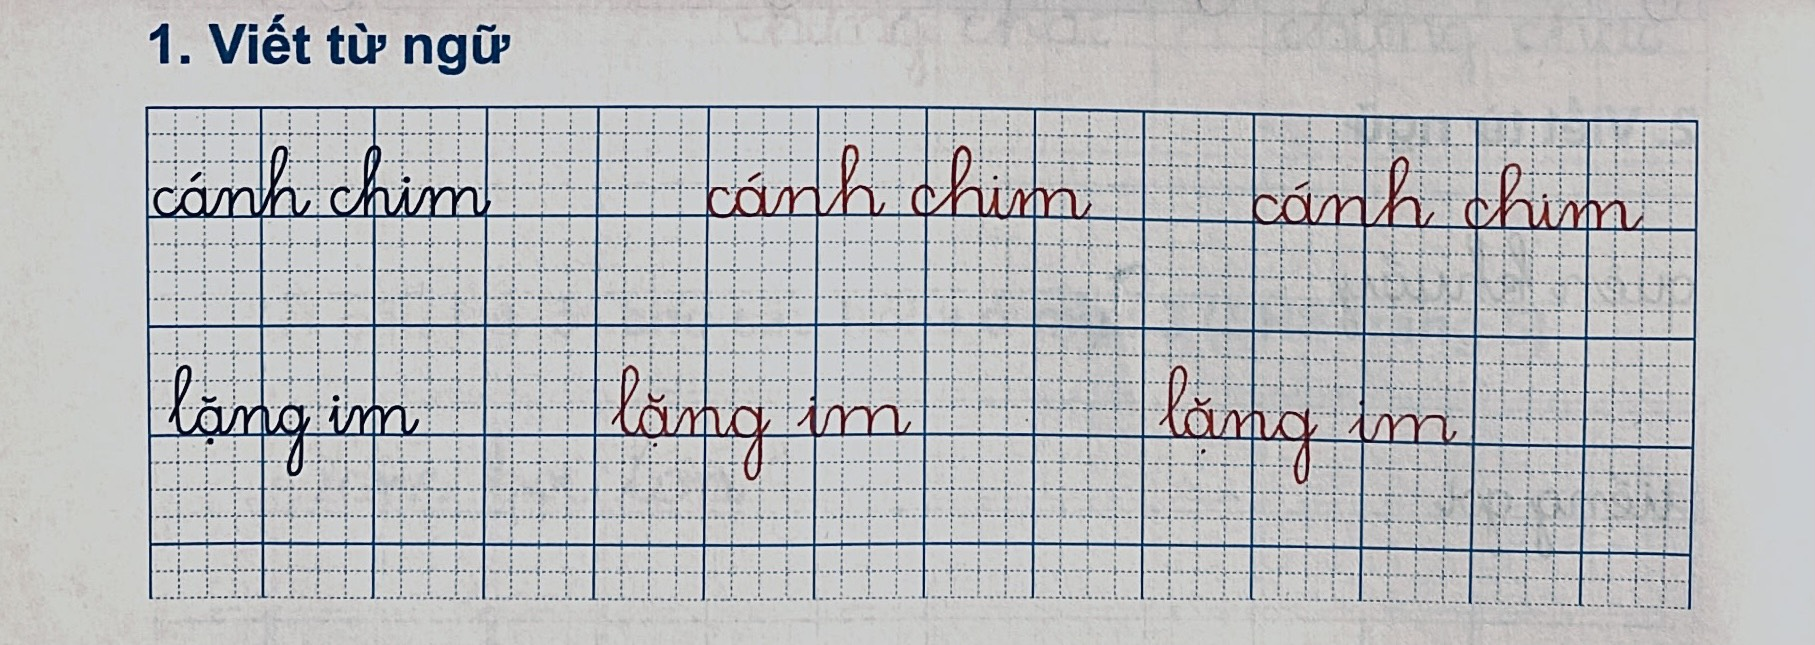 1. Viết từ ngữ
cánh chim cánh chim cánh chim
lặng im lặng im lặng im